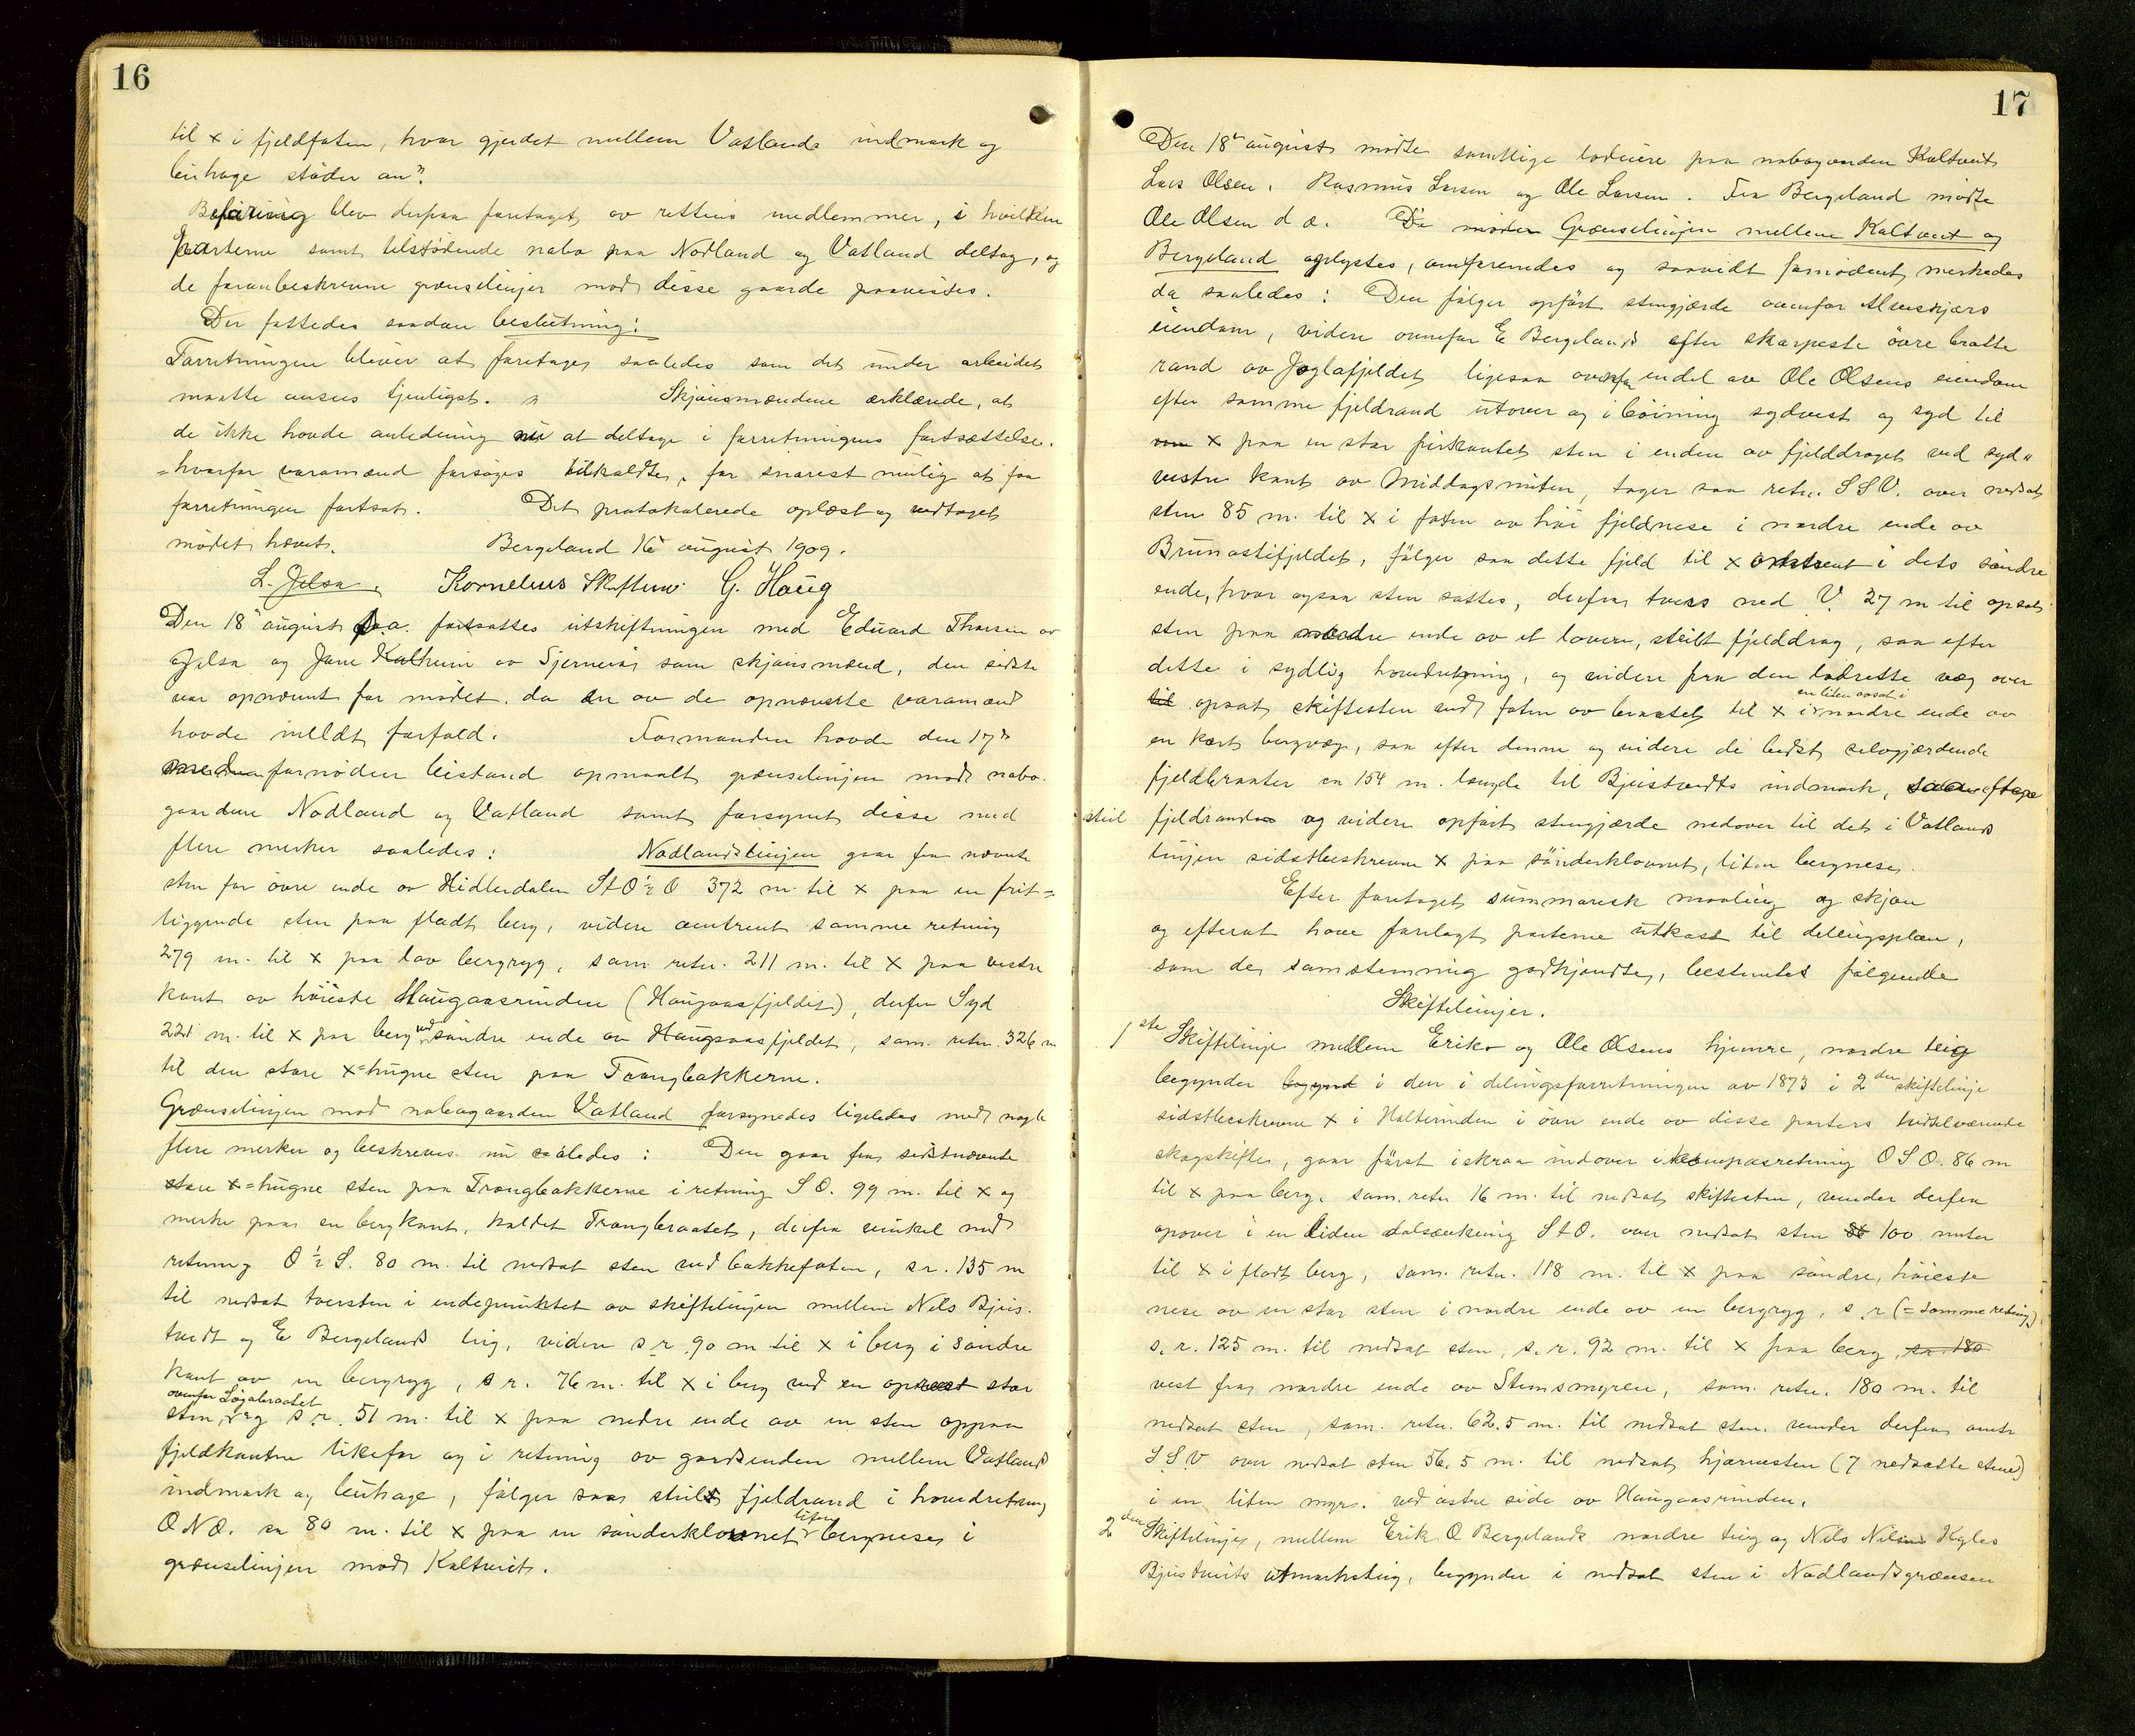 16
til x i fjeldfoten, hvor gjerdet mellem Vatlands indmark og
beithage støder an".
Befaring blev derpaa foretaget av rettens medlemmer, i hvilken
parterne samt tilstødende nabo paa Nodland og Vatland deltog, og
de foranbeskrevne grænselinjer mod disse gaarde paavistes.
Der fattedes saadan beslutning:
Forretningen bliver at foretages saaledes som det under arbeidet
maatte ansees tjenligst. Skjønsmændene erklærede, at
de ikke havde anledning nu at deltage i forretningens fortsættelse.
hvorfor varamænd forsøges tilkaldte, for snarest mulig at faa
forretningen fortsat. Det protokolerede oplæst og vedtaget
mødet hævet. Bergeland 16 august 1909.
L. Jelsa. Kornelius Skiftun G. Haug
Den 18 august s.a. fortsattes utskiftningen med Eduard Thorsen av
Jelsa og Jane Kalheim av Sjernerøi som skjønsmænd, den sidste
var opnævnt for mødet da en av de opnævnte varamænd
havde meldt forfald. Formanden havde den 17de
med fornøden bistand opmaalt grænselinjen mod nabo-
gaardene Nodland og Vatland samt forsynet disse med
flere merker saaledes: Nodlandslinjen gaar fra nævnte
sten for øvre ende av Hidlerdalen StO½O 372 m. til x paa en frit=
liggende sten paa fladt berg, videre omtrent samme retning
279 m. til x paa lav bergryg, sam retn. 211 m. til x paa vestre
kant av høieste Haugaasrinden (Haugaasfjeldet), derfra Syd
221 m. til x paa berg ved søndre ende av Haugaasfjeldet, sam. retn. 326 m
til den store x=hugne sten paa Trangbakkerne.
Grænselinjen mod nabogaarden Vatland forsynedes ligeledes med nogle
flere merker og beskreves nu saaledes: Den gaar fra sidstnævnte
store x=hugne sten paa Trangbakkerne i retning SO. 99 m. til x og
merke paa en bergkant, kaldet Trangbraatet, derfra vinkel med
retning O½S. 80 m. til nedsat sten ved bakkefoten, s.r. 135 m
til nedsat tversten i endepunktet av skiftelinjen mellem Nils Bjus-
tvedt og E Bergelands teig, videre s.r. 90 m til x i berg i søndre
kant av en bergryg, s r. 76 m. til x i berg ved en opreist stor
ovenfor Løjabraatet
sten, og s.r. 51 m. til x paa nedre ende av en sten oppaa
fjeldkanten likefor og i retning av gardsenden mellem Vatlands
indmark og beithage, følger saa steil fjeldrand i hovedretning
ONO. ca 80 m. til x paa en sønderklovnet liten bergnese i
grænselinjen mod Kaltveit.
17
Den 18 august mødte samtlige lodeiere paa nabogaarden Kaltveit
Lars Olsen, Rasmus Larsen og Ole Larsen. Fra Bergeland mødte
Ole Olsen d æ. Grænselinjen mellem Kaltveit og
Bergeland oplystes, omforenedes og saavidt fornødent merkedes
da saaledes: Den følger opført stengjærde ovenfor Alsenskjærs
eiendom, videre ovenfor E Bergelands efter skarpeste øvre bratte
rand av Joglafjeldet ligesaa ovenfor endel av Ole Olsens eiendom
efter samme fjeldrand utover og i bøining sydvest og syd til
x paa en stor firkantet sten i enden av fjelddraget ved syd=
vestre kant av Middagsnuten, tager saa retn. SSV. over nedsat
sten 85 m. til x i foten av høi fjeldnese i nordre ende av
Brunastifjeldet, følger saa dette fjeld til x omtrent i dets søndre
ende, hvor ogsaa sten sattes, derfra tvers ned V. 27 m til opsat
sten paa nordre ende av et lavere, steilt fjelddrag, saa efter
dette i sydlig hovedretning, og videre fra den lodrette væg over
opsat skiftesten ved foten av braatet til x i en liten avsat i nordre ende av
en kort bergvæg, saa efter denne og videre de bedst selvgjærdende
fjeldbranter ca 154 m. længde til Bjustvedts indmark, saa efter
steil fjeldrand og videre opført stengjærde nedover til det i Vatlands
linjen sidstbeskrevne x paa sønderklovnet, liten bergnese.
Efter foretaget summarisk maaling og skjøn
og efterat have forelagt parterne utkast til delingsplan,
som de samstemmig godkjendte, bestemtes følgende
Skiftelinjer.
1ste Skiftelinje mellem Eriks og Ole Olsens hjemre, nordre teig
begynder i den i delingsforretningen av 1873 i 2den skiftelinje
sidstbeskrevne x i Holterinden i øvre ende av disse parters tidligere
skogskifte, gaar først iskraa indover i kompasretning OSO. 86 m
til x paa berg, sam. retn 16 m. til nedsat skiftesten, vender derfra
opover i en liden dalsænkning StO. over nedsat sten 100 meter
til x i fladt berg, sam. retn. 118 m. til x paa søndre, høieste
nese av en stor sten i nordre ende av en bergryg, s.r (=samme retning)
s.r. 125 m. til nedsat sten, s.r. 92 m. til x paa berg, s.r. 180
vest fra nordre ende av Stemsmyren, sam. retn. 180 m. til
nedsat sten, sam. retn. 62.5 m. til nedsat sten. vender derfra omtr
SSV over nedsat sten 56.5 m. til nedsat hjørnesten (7 nedsatte stene)
i en liten myr. ved østre side av Haugaasrinden.
2den Skiftelinje, mellem Erik O Bergelands nordre teig og Nils Nilsens Kyles
Bjustveits utmarksteig, begynder i nedsat sten i Nodlandsgrænsen